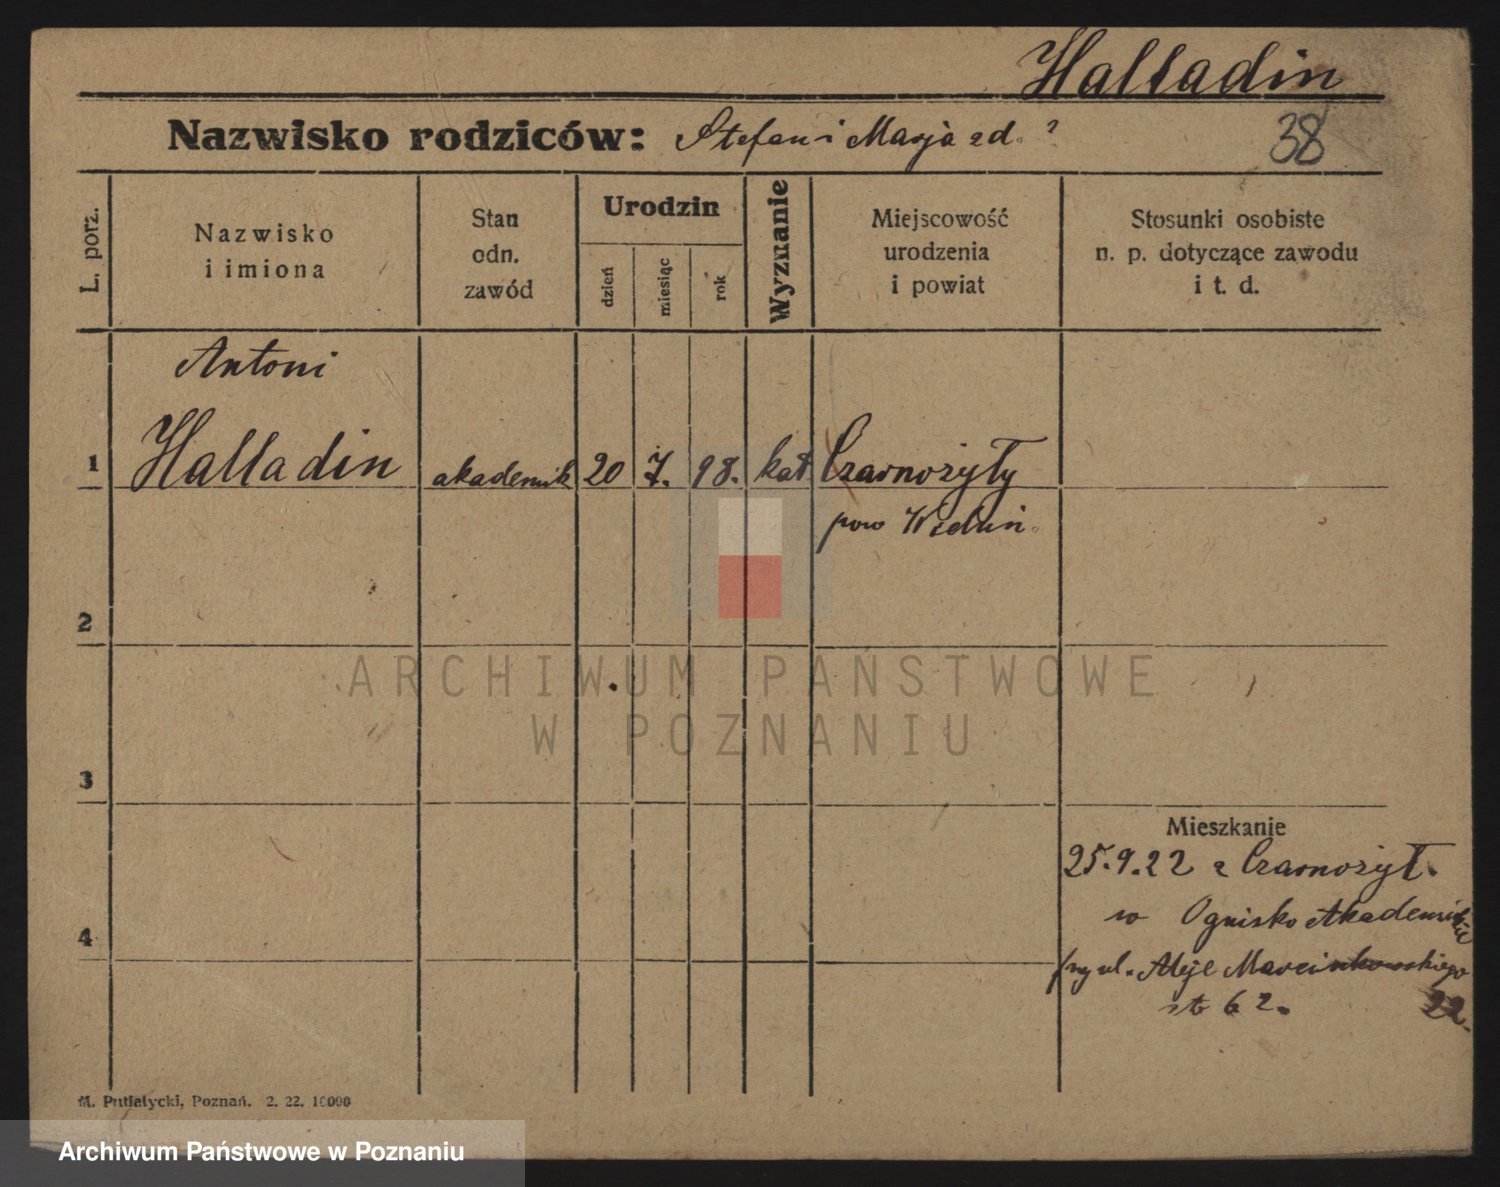 Halladin
Nazwisko rodziców: Stefan i Marja zd. ?
38
L. porz.
Nazwisko
i imiona
Stan
odn.
zawód
Urodzin
dzień
miesiąc
rok
Wyznanie
Miejscowość
urodzenia
i powiat
Stosunki osobiste
n. p. dotyczące zawodu
i t. d.
Antoni
1 Halladin akademik 20 7. 98. kat. Czarnożyły
pow Wieluń.
2
ARCHIWUM PAŃSTWOWE
W POZNANIU
3
Mieszkanie
25.9.22 z Czarnożył.
w Ognisko Akademickie
4
przy ul. Aleje Marcinkowskiego
22.
62.
M. Putiatycki, Poznań. 2. 22. 10000
Archiwum Państwowe w Poznaniu